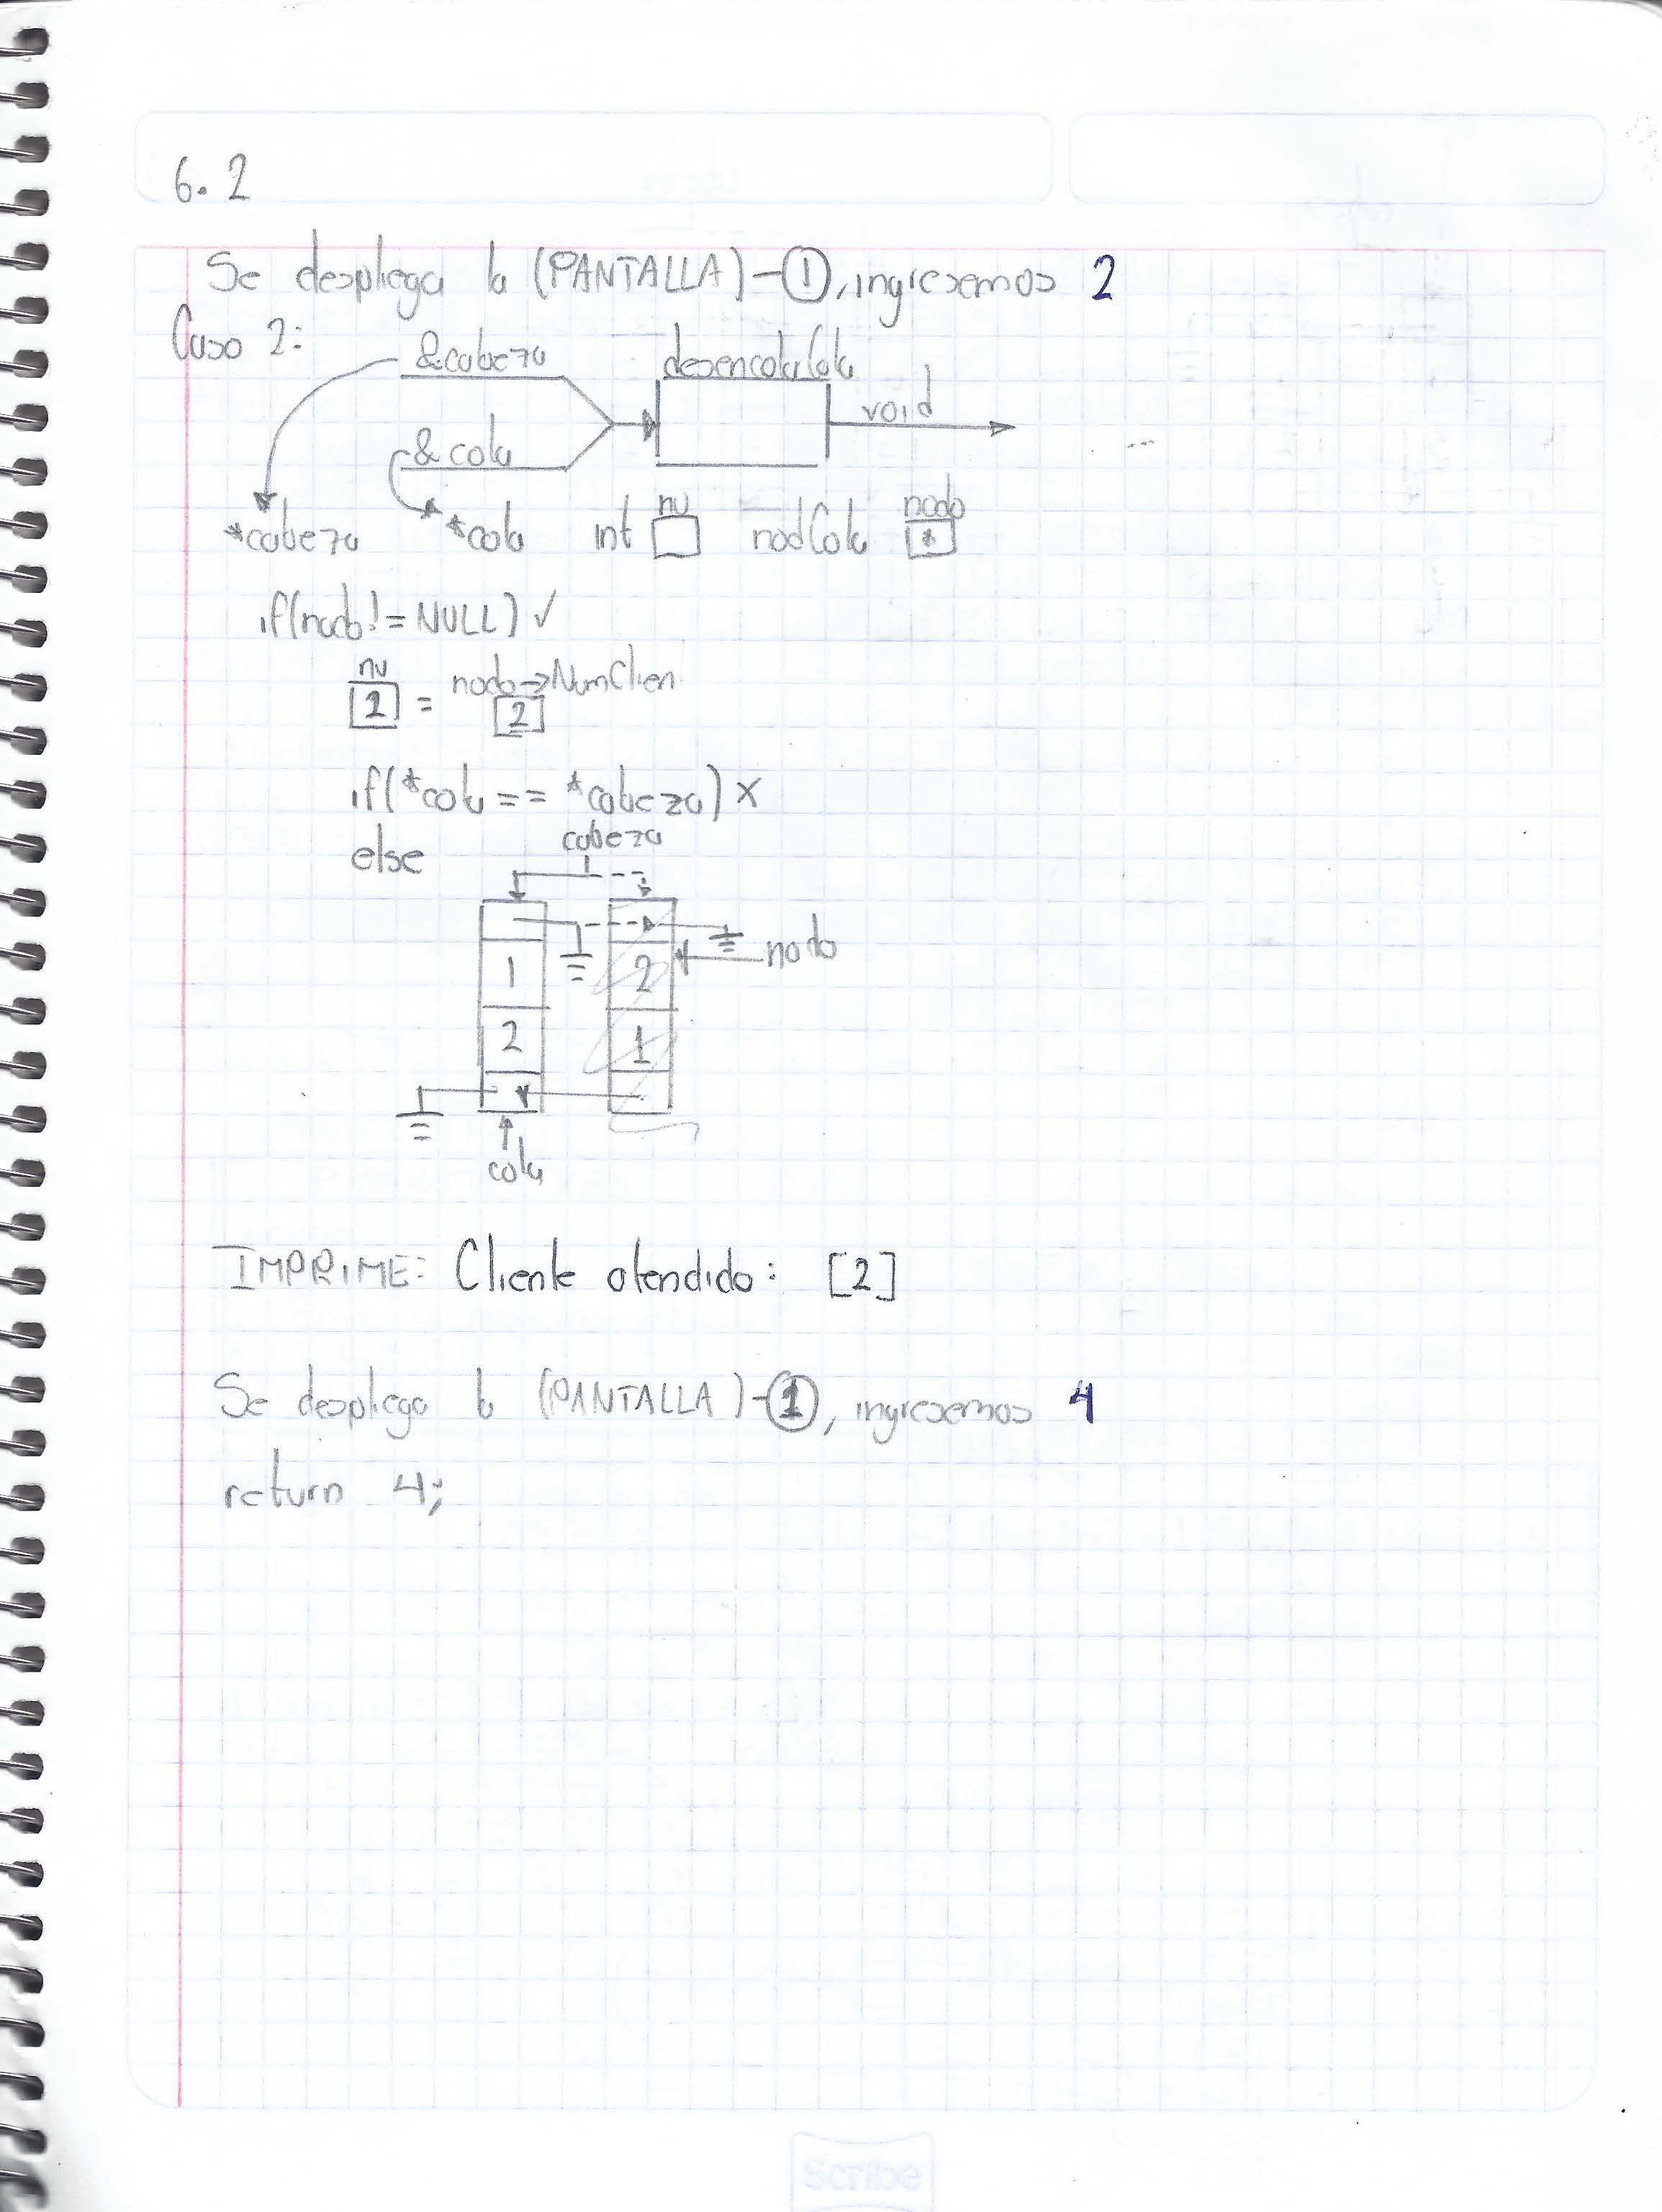 6.2
Se despliega la (PANTALLA)-①, ingresemos 2
Caso 2:
&cabeza
desencolaCola
void
&cola
...
*cabeza *cola int nu nodCola nodo
*
if(nodo!=NULL) ✓
nu nodo->NumClien
[2] = [2]
if(*cola == *cabeza) x
else
cabeza
nodo
1 2
2 1
cola
IMPRIME: Cliente atendido: [2]
Se despliega la (PANTALLA)-①, ingresemos 4
return 4;
Scribe